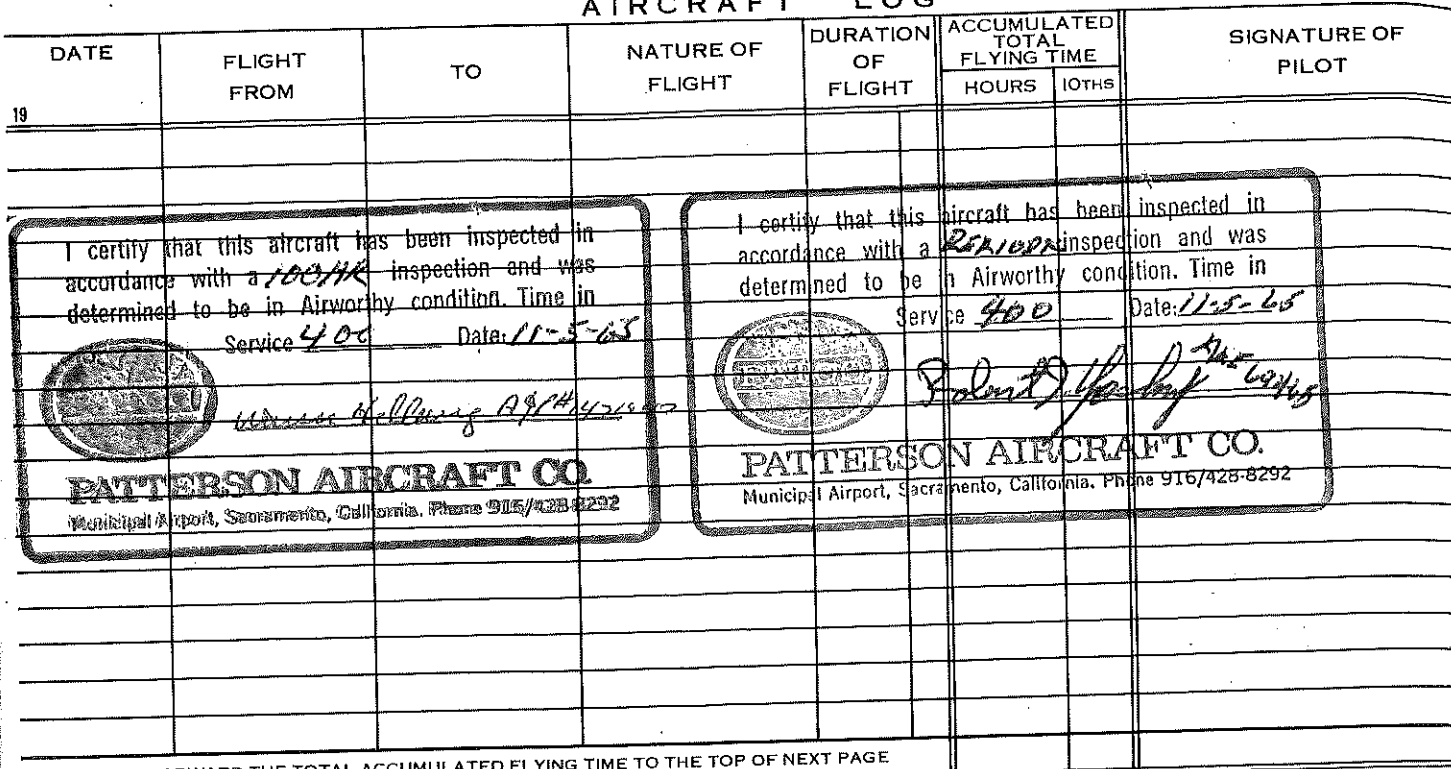 AIRCRAFT LOG
DATE
FLIGHT FROM
TO
NATURE OF FLIGHT
DURATION OF FLIGHT
ACCUMULATED TOTAL FLYING TIME
HOURS
10THS
SIGNATURE OF PILOT
19
I certify that this aircraft has been inspected in
accordance with a 100 HR inspection and was
determined to be in Airworthy condition. Time in
Service 400 Date: 11-5-65
A&P#
PATTERSON AIRCRAFT CO.
Municipal Airport, Sacramento, California. Phone 916/428-8292
I certify that this aircraft has been inspected in
accordance with a PERIODIC inspection and was
determined to be in Airworthy condition. Time in
Service 400 Date: 11-5-65
Robert
PATTERSON AIRCRAFT CO.
Municipal Airport, Sacramento, California. Phone 916/428-8292
THE TOTAL ACCUMULATED FLYING TIME TO THE TOP OF NEXT PAGE